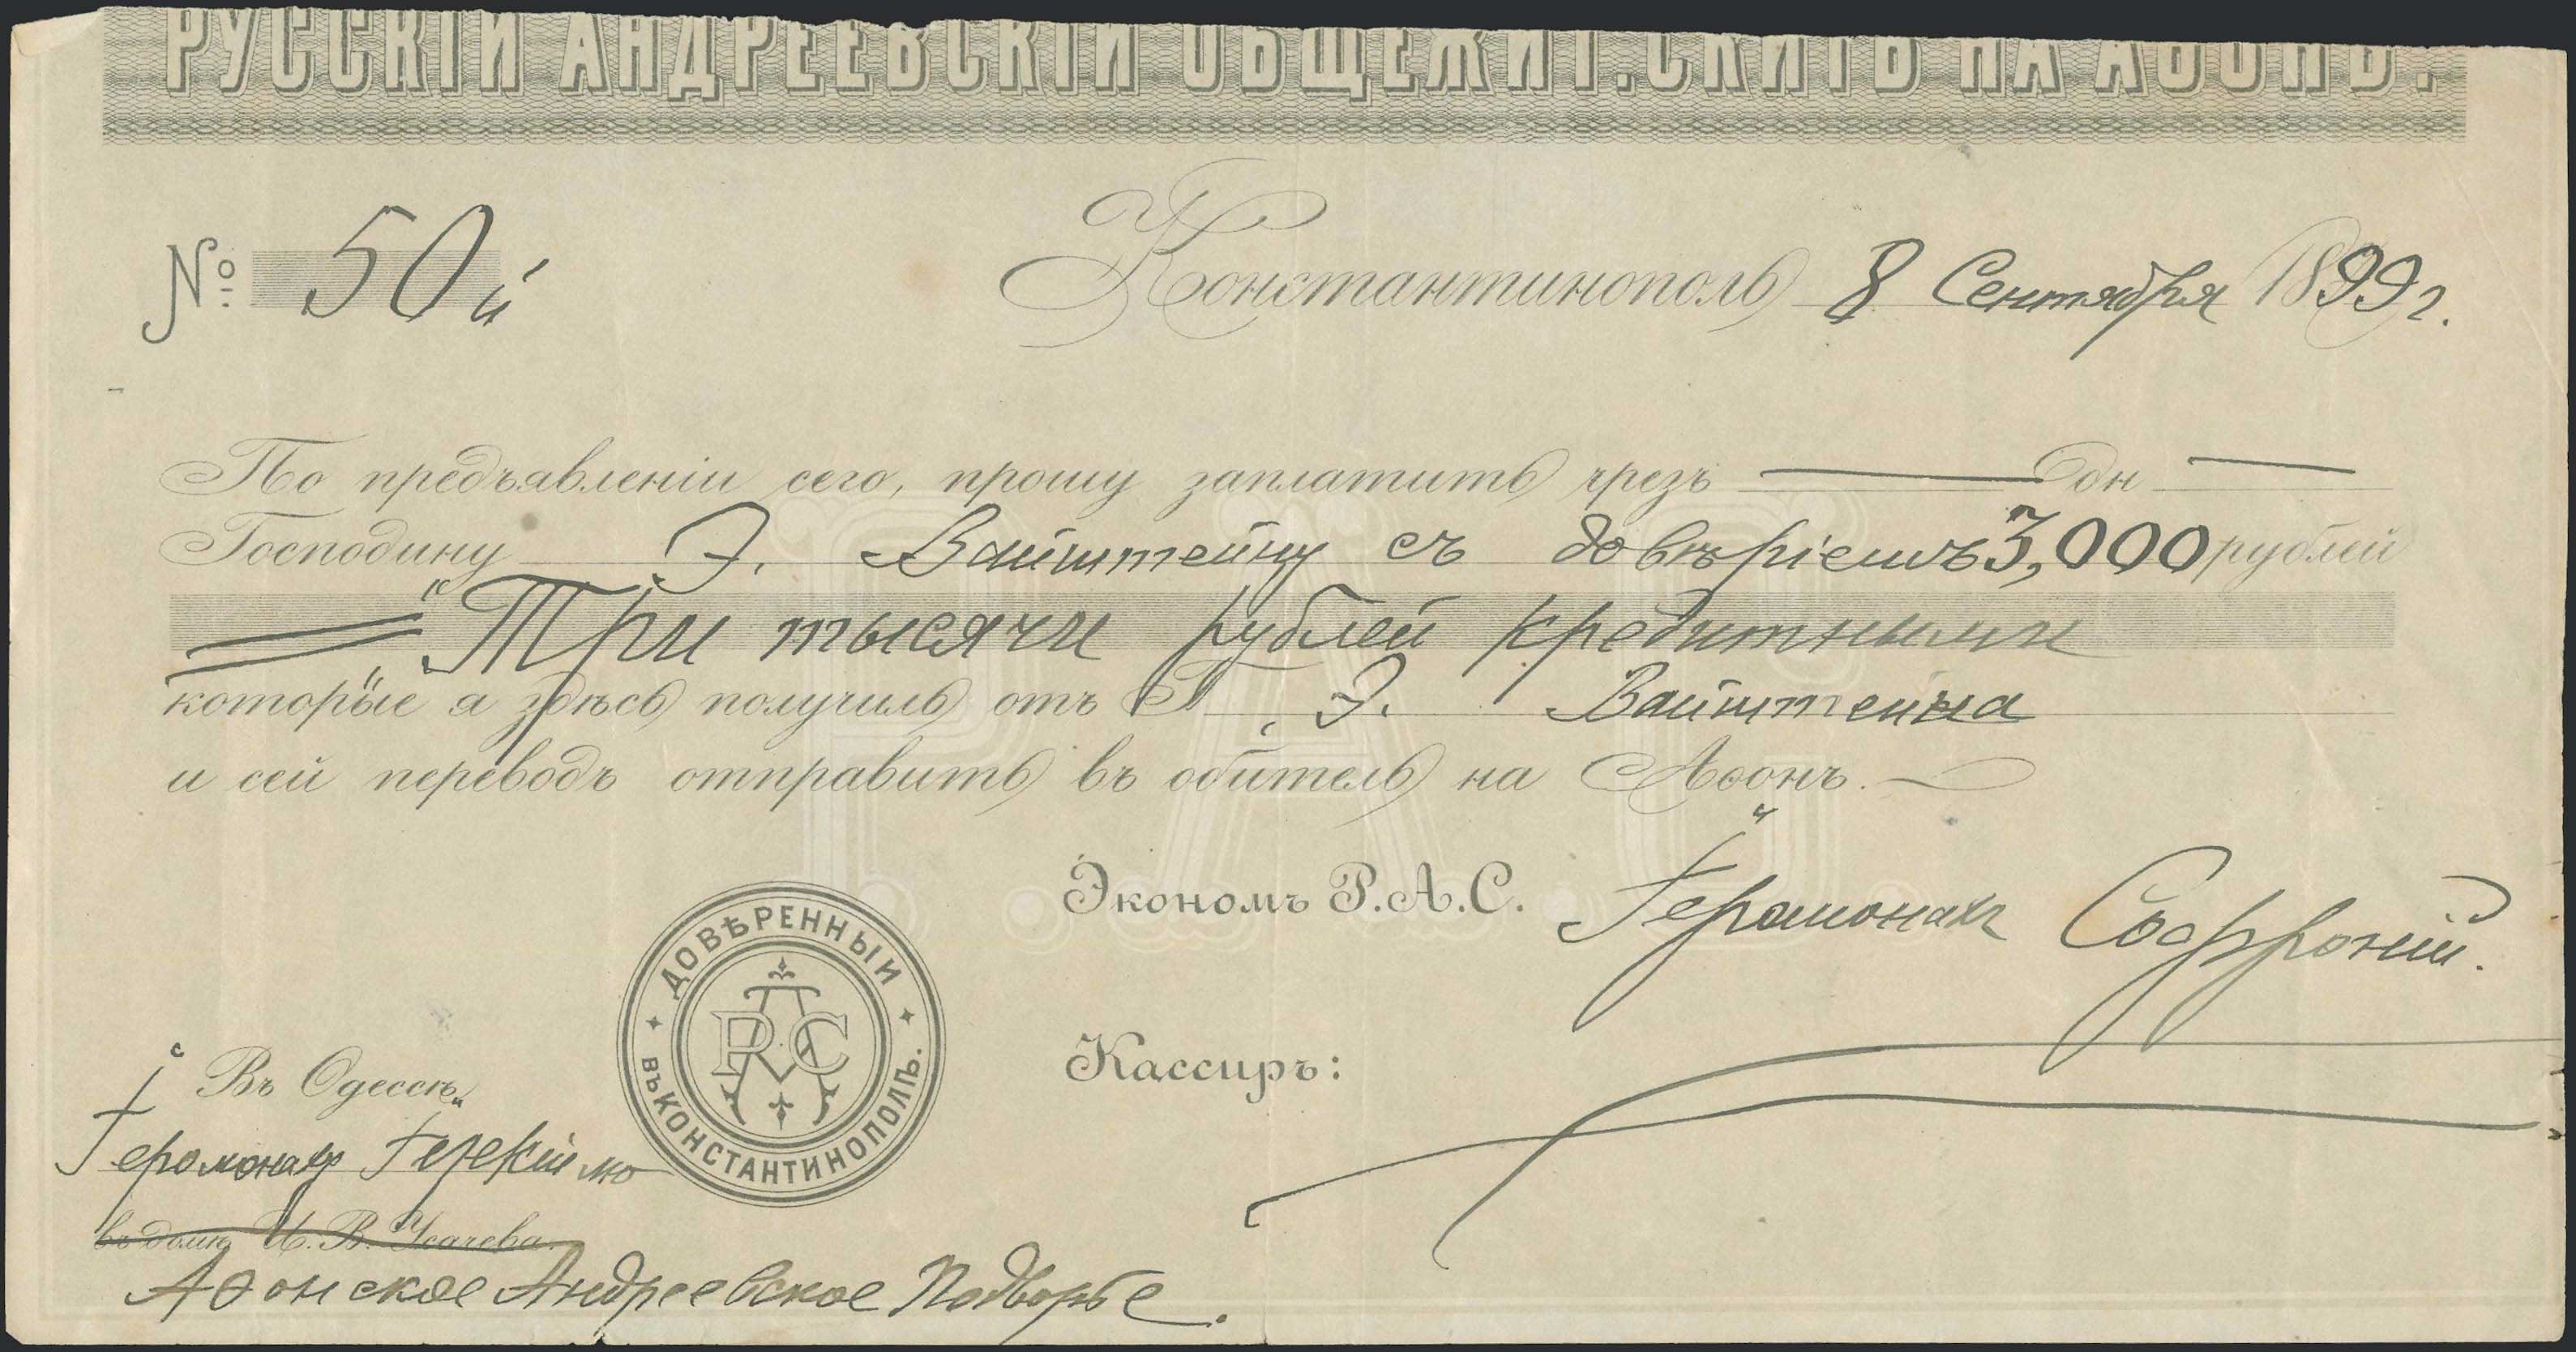 РУССКІЙ АНДРЕЕВСКІЙ ОБЩЕЖИТ. СКИТЪ НА АѲОНѢ.
№ 50й
Константинополь 8 Сентября 1899 г.
По предъявленіи сего, прошу заплатить чрезъ — Дн —
Господину Э. Вайштейну съ довѣріемъ 3,000 рублей
"Три тысячи рублей кредитными"
которые я здѣсь получилъ отъ Г. Э. Вайштейна
и сей переводъ отправить въ обитель на Аѳонъ.
Экономъ Р.А.С. Іеромонахъ Софроній.
ДОВѢРЕННЫЙ
РАС
ВЪ КОНСТАНТИНОПОЛѢ.
Кассиръ:
Въ Одессѣ
Іеромонаху Іезекіилю
въ домѣ И. В. Усачева.
Аѳонское Андреевское Подворье.